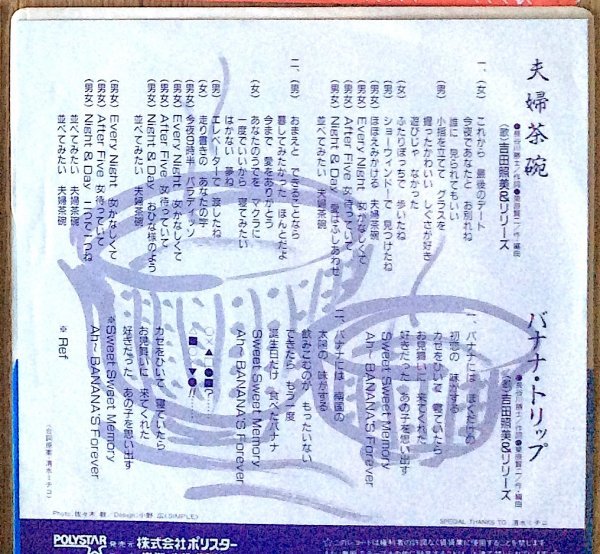 夫婦茶碗
(歌)吉田照美&リリーズ
一、(女) これから 最後のデート
今夜であなたと お別れね
誰に 見られてもいい
(男) 小指を立てて グラスを
握ったかわいい しぐさが好き
遊びじゃ なかった
(女) ふたりぼっちで 歩いたね
(男) ショーウィンドーで 見つけたね
(男女) ほほえみかける 夫婦茶碗
(男女) Every Night 女 かなしくて
(男女) After Five 女 待っていて
(男女) Night & Day
並べてみたい 夫婦茶碗
二、(男) おまえと できることなら
暮してみたかった ほんとだよ
今まで 愛をありがとう
(女) あなたのうでを マクラに
一度でいいから 寝てみたい
はかない 夢ね
(男) エレベーターで 渡したね
(女) 走り書きの あなたの字
(男女) 今夜9時半 パラディソン
(男女) Every Night 女 かなしくて
(男女) After Five 女 待っていて
(男女) Night & Day おひな様のよう
並べてみたい 夫婦茶碗
(男女) Every Night 女 かなしくて
(男女) After Five 女 待っていて
(男女) Night & Day
並べてみたい 夫婦茶碗
並べてみたい 夫婦茶碗
バナナ・トリップ
(歌)吉田照美&リリーズ
一、バナナには ぼくたちの
初恋の 味がする
カゼをひいて 寝ていたら
お見舞いに 来てくれた
好きだった あの子を思い出す
※Sweet Sweet Memory
Ah〜 BANANA'S Forever
二、バナナには 南国の
太陽の 味がする
飲みこむのが もったいない
できたら もう一度
誕生日だけ 食べたバナナ
Sweet Sweet Memory
Ah〜 BANANA'S Forever
カゼをひいて 寝ていたら
お見舞いに 来てくれた
好きだった あの子を思い出す
※Sweet Sweet Memory
Ah〜 BANANA'S Forever
※ Ref
(台詞原案:清水ミチコ)
Photo:佐々木 教/Design:小野 広(SIMPLE)
SPECIAL THANKS TO 清水ミチコ
POLYSTAR 発売元 株式会社ポリスター
☆このレコードは権利者の許諾なく賃貸業に使用することを禁じます